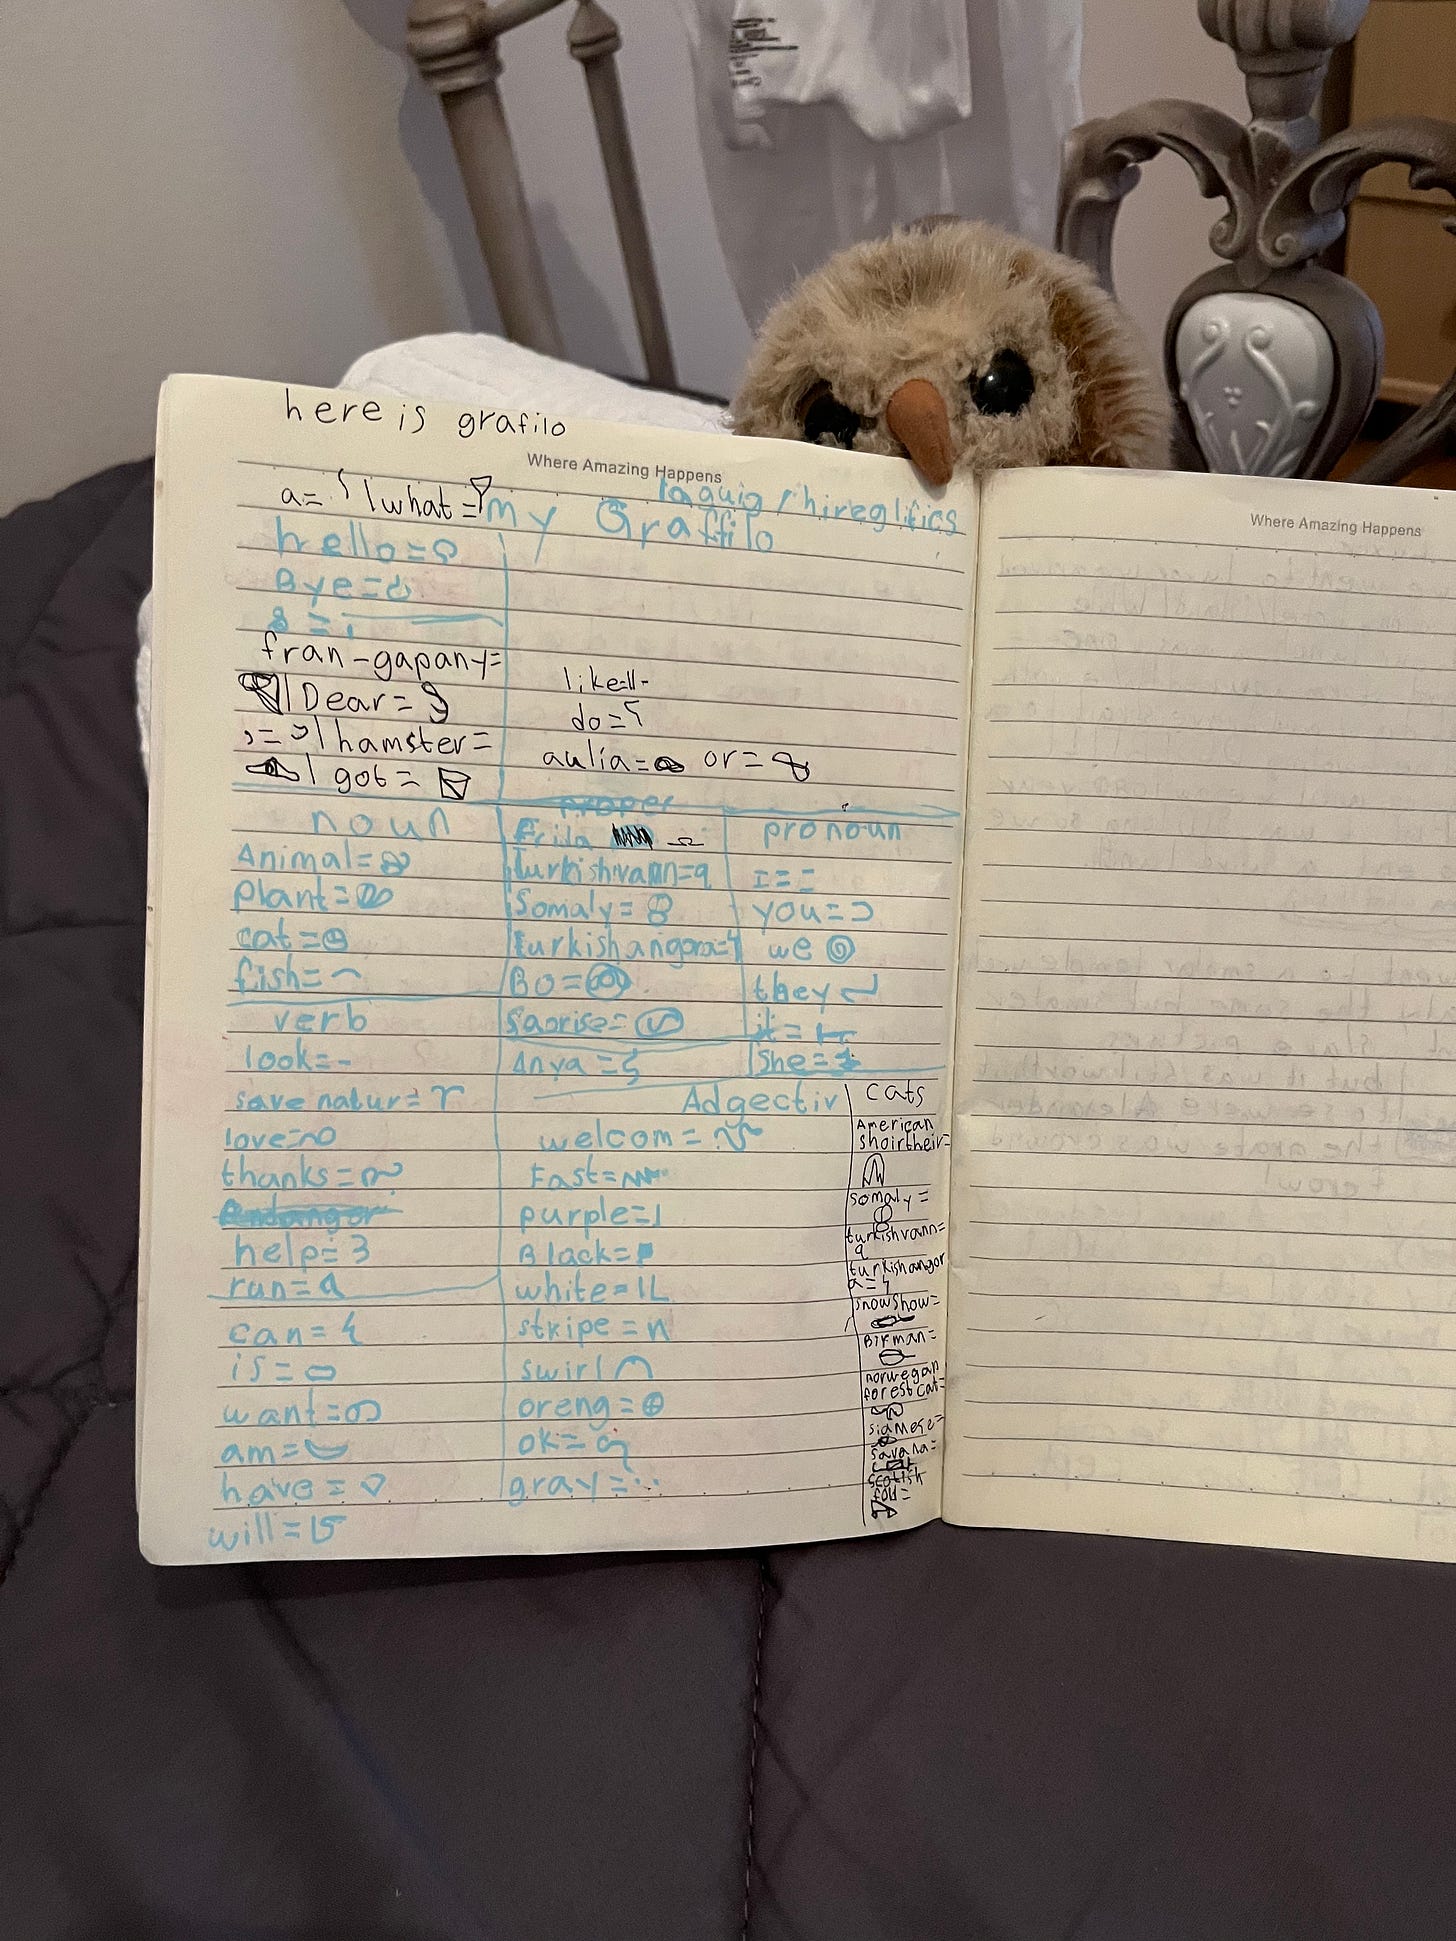 here is grafilo
Where Amazing Happens
a= | what =
my Graffilo
laguig / hireglifics
hello=
Bye=
& =
fran-gapany=
| Dear =
, = | hamster =
| got =
like=
do=
aulia= or =
noun
Animal=
Plant=
cat =
fish=
verb
look=-
save natur=
love=
thanks=
endanger
help=3
run=
can =
is =
want=
am=
have =
will=
proper
Frila
turkishvann=9
Somaly = 8
turkishangora=4
Bo=
Saorise=
Anya =
pronoun
I=
you=
we
they
it =
She=
Adgectiv
welcom =
Fast=
purple=
Black=
white=1L
stripe = n
swirl
oreng=
ok=
gray=
cats
American
shoirtheir=
somaly =
turkishvann=
9
turkishangor
a=4
snowshow=
Birman=
norwegan
forest cat=
siamese=
savana=
scotish
fold=
Where Amazing Happens